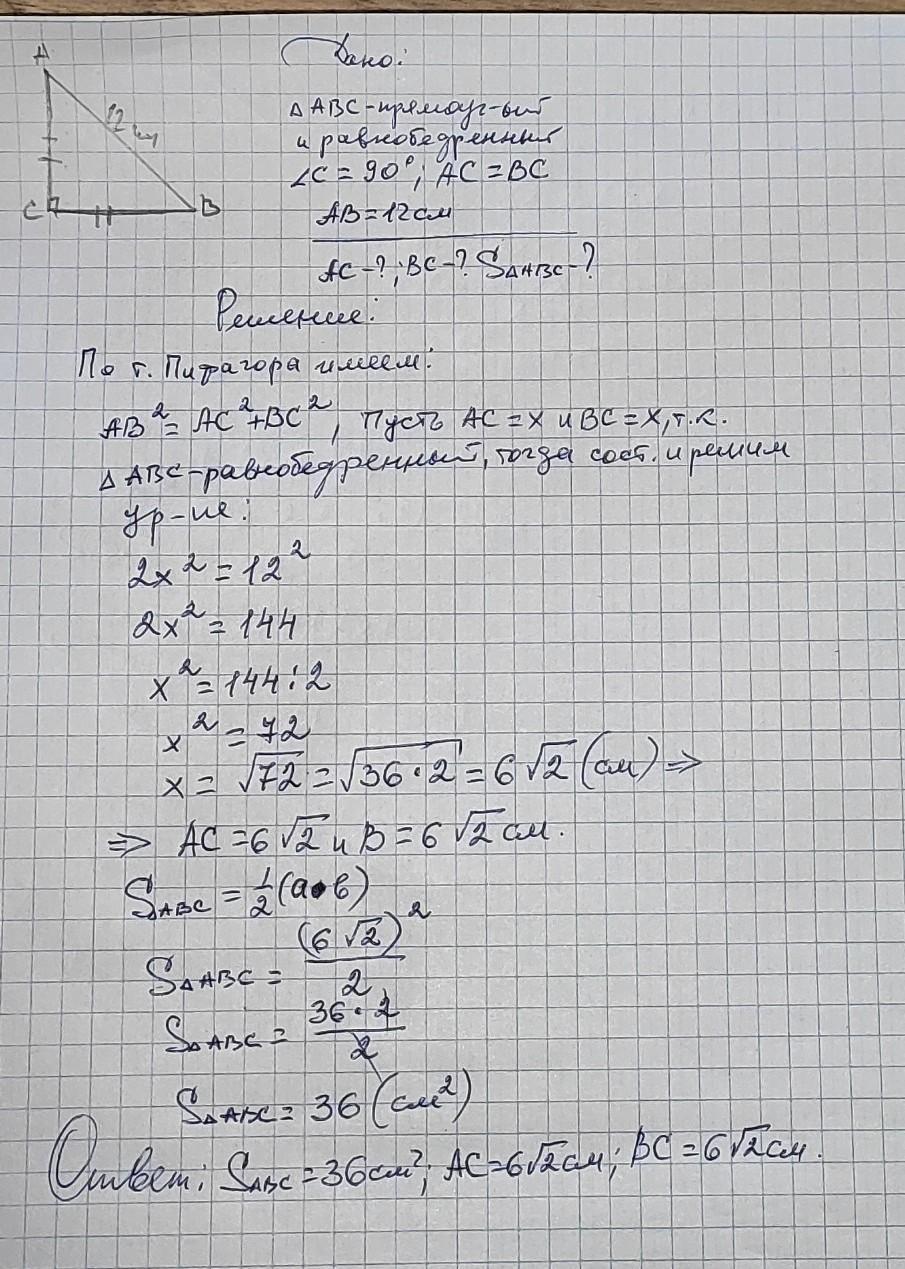 A
12 см
C
B
Дано:
△ABC-прямоуг-ый
и равнобедренный
∠C = 90°; AC = BC
AB = 12 см
AC-?; BC-? S△ABC-?
Решение:
По т. Пифагора имеем:
AB² = AC² + BC², Пусть AC = x и BC = x, т.к.
△ABC-равнобедренный, тогда сост. и решим
ур-ие:
2x² = 12²
2x² = 144
x² = 144 : 2
x² = 72
x = √72 = √36·2 = 6√2 (см) ⇒
⇒ AC = 6√2 и B = 6√2 см.
S△ABC = 1/2 (a·b)
S△ABC = (6√2)²/2
S△ABC = 36·2/2
S△ABC = 36 (см²)
Ответ: SABC = 36 см²; AC = 6√2 см; BC = 6√2 см.